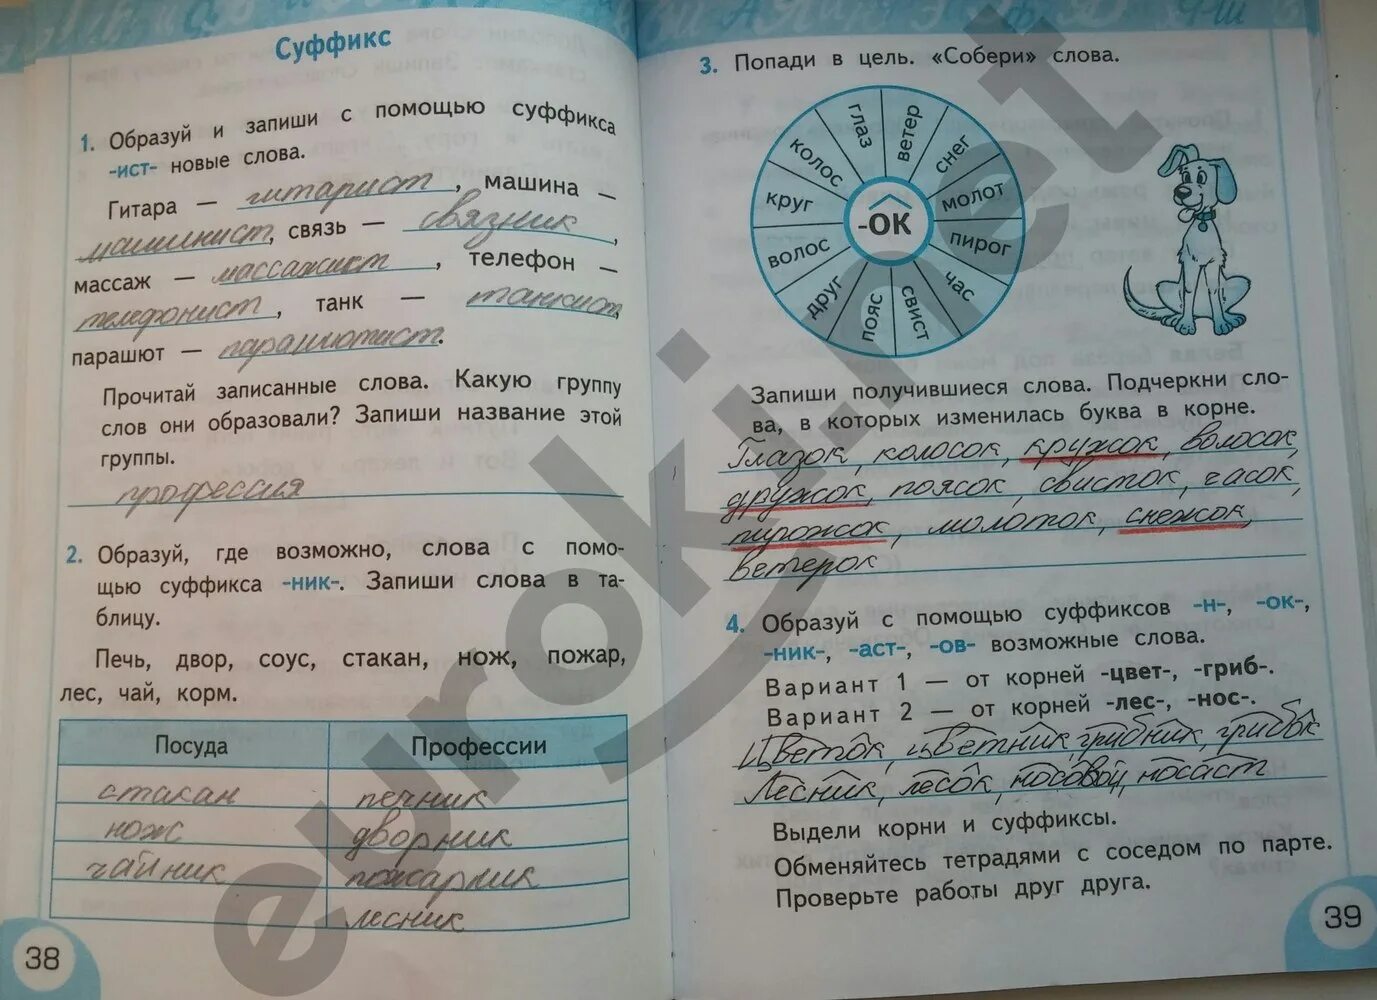 Суффикс
1. Образуй и запиши с помощью суффикса
-ист- новые слова.
Гитара — гитарист, машина —
машинист, связь — связник,
массаж — массажист, телефон —
телефонист, танк — танкист,
парашют — парашютист.
Прочитай записанные слова. Какую группу
слов они образовали? Запиши название этой
группы.
профессия
2. Образуй, где возможно, слова с помо-
щью суффикса -ник-. Запиши слова в та-
блицу.
Печь, двор, соус, стакан, нож, пожар,
лес, чай, корм.
Посуда Профессии
стакан печник
нож дворник
чайник пожарник
лесник
38
3. Попади в цель. «Собери» слова.
глаз
ветер
снег
молот
пирог
час
свист
пояс
друг
волос
круг
колос
-ОК
Запиши получившиеся слова. Подчеркни сло-
ва, в которых изменилась буква в корне.
Глазок, колосок, кружок, волосок,
дружок, поясок, свисток, часок,
пирожок, молоток, снежок,
ветерок
4. Образуй с помощью суффиксов -н-, -ок-,
-ник-, -аст-, -ов- возможные слова.
Вариант 1 — от корней -цвет-, -гриб-.
Вариант 2 — от корней -лес-, -нос-.
Цветок, цветник, грибник, грибок
Лесник, лесок, носовой, носаст
Выдели корни и суффиксы.
Обменяйтесь тетрадями с соседом по парте.
Проверьте работы друг друга.
39
euroki.net